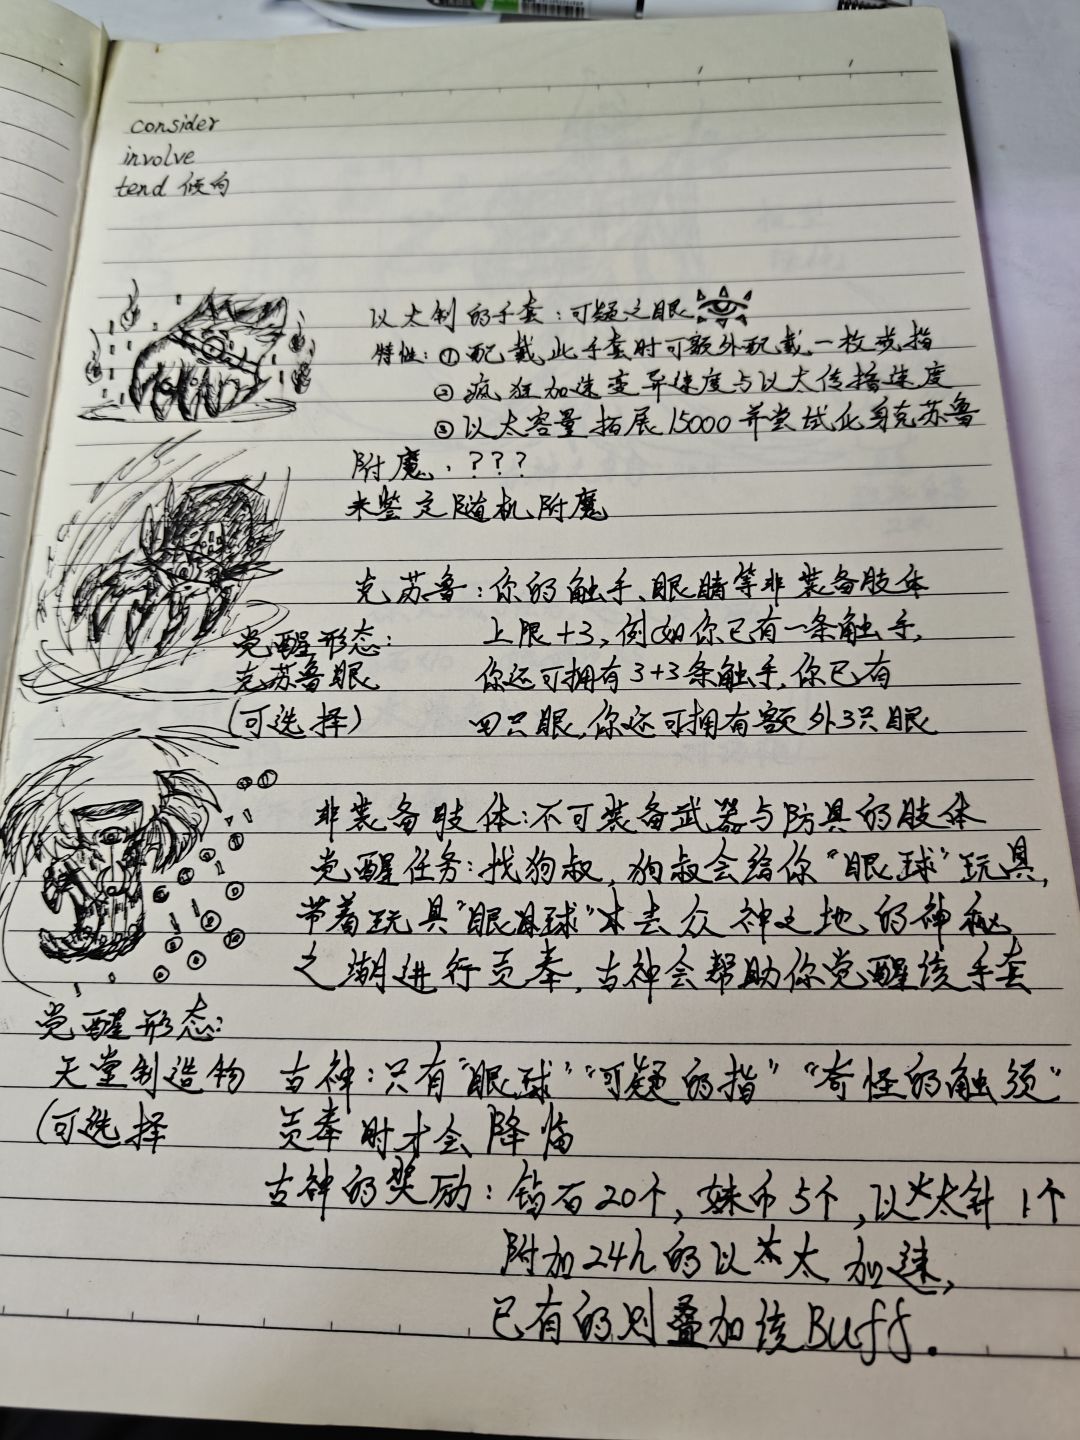 consider
involve
tend 倾向
以太制的手套:可疑之眼
特性:①配戴此手套时可额外配戴一枚戒指
②疯狂加速变异速度与以太传播速度
③以太容量拓展15000并尝试化身克苏鲁
附魔:???
未鉴定随机附魔
克苏鲁:你的触手、眼睛等非装备肢体
上限+3,例如你已有一条触手,
你还可拥有3+3条触手,你已有
四只眼,你还可拥有额外3只眼
觉醒形态:
克苏鲁眼
(可选择)
非装备肢体:不可装备武器与防具的肢体
觉醒任务:找狗叔,狗叔会给你“眼球”玩具,
带着玩具“眼球”去众神之地的神秘
之潮进行贡奉,古神会帮助你觉醒该手套
觉醒形态:
天堂制造物
(可选择
古神:只有“眼球”“可疑的指”“奇怪的触须”
贡奉时才会降临
古神的奖励:钻石20个,妹币5个,以太针1个
附加24h的以太加速,
已有的则叠加该Buff.